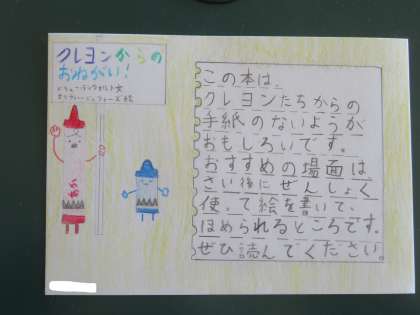 クレヨンからの
おねがい!
ドリュー・デイウォルト文
オリヴァー・ジェファーズ絵
あか
この本は、
クレヨンたちからの
手紙のないようが
おもしろいです。
おすすめの場面は、
さい後にぜんしょく
使って絵を書いて、
ほめられるところです。
ぜひ読んでください。